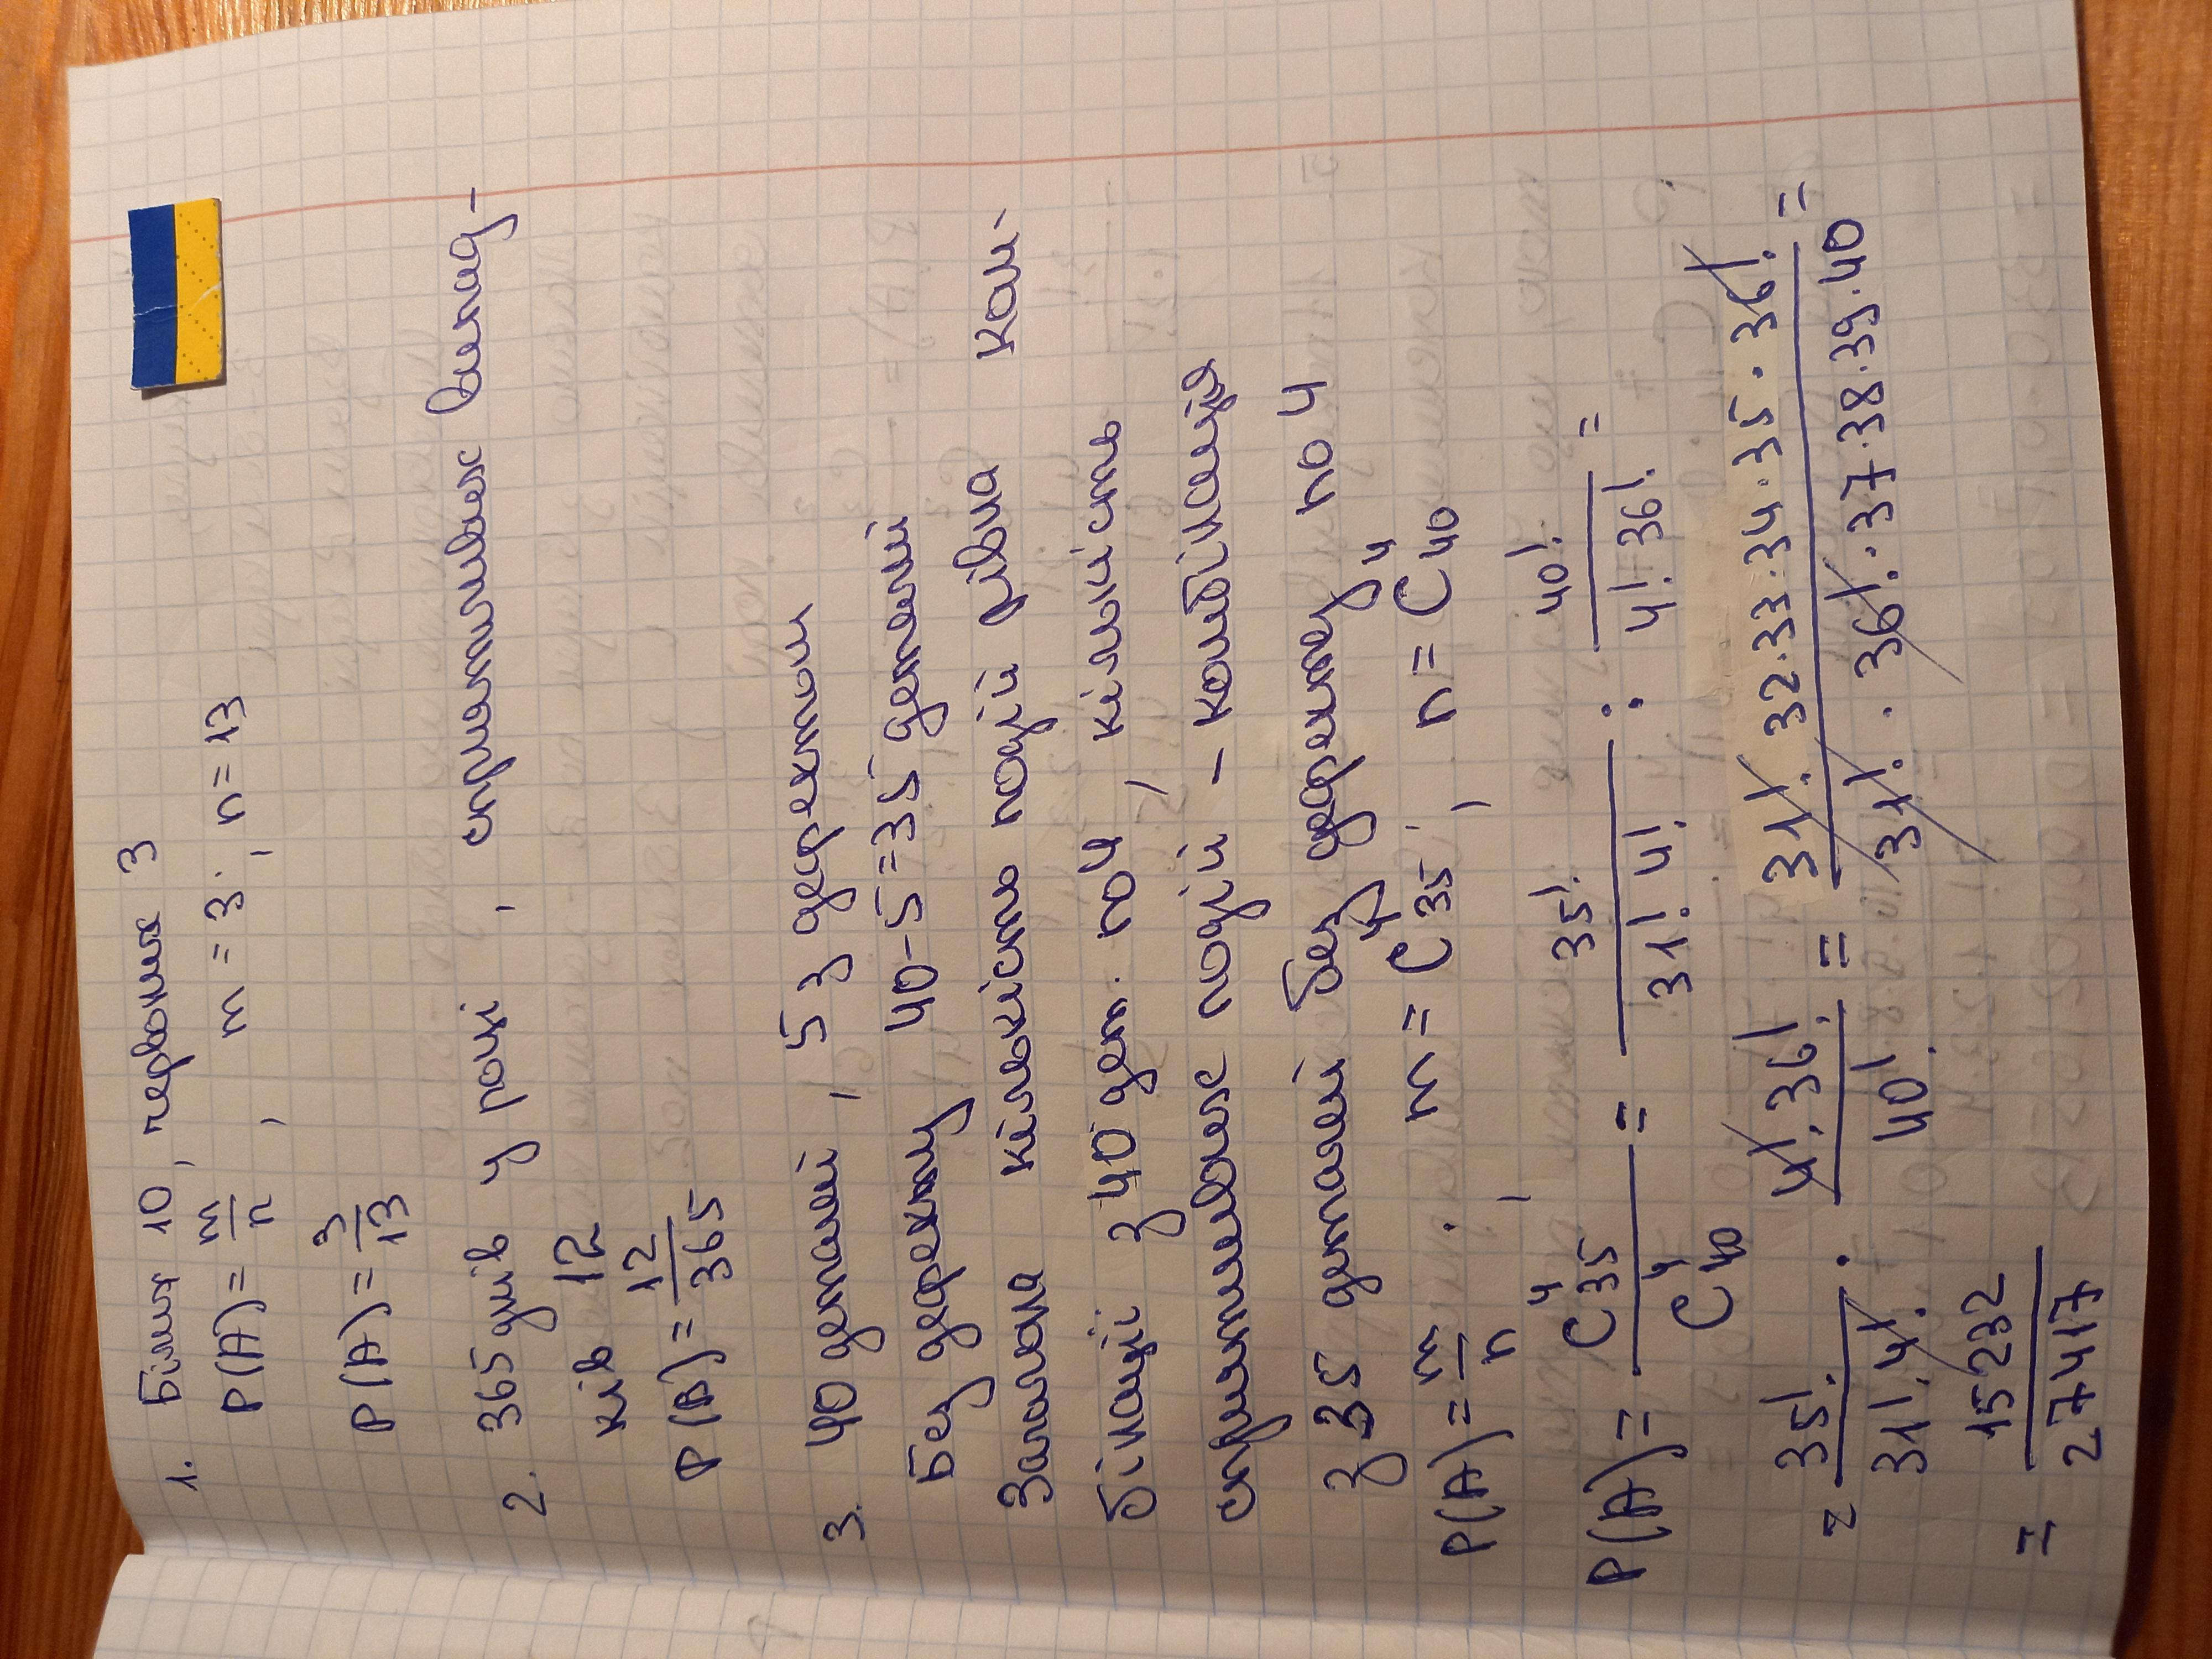 1. Білих 10, червоних 3
P(A) = m/n, m = 3; n = 13
P(A) = 3/13
2. 365 днів у році, сприятливих випад-
ків 12
P(A) = 12/365
3. 40 деталей, 5 з дефектом
Без дефекту 40-5=35 деталей
Загальна кількість подій рівна ком-
бінації з 40 дет. по 4, кількість
сприятливих подій - комбінація
з 35 деталей без дефекту по 4
P(A) = m/n; m = C⁴₃₅; n = C⁴₄₀
P(A) = C⁴₃₅ / C⁴₄₀ = 35! / 31! 4! : 40! / 4! 36! =
= 35! / 31! 4! · 4! · 36! / 40! = 31! · 32·33·34·35·36! / 31! · 36! · 37·38·39·40 =
= 15232 / 27417